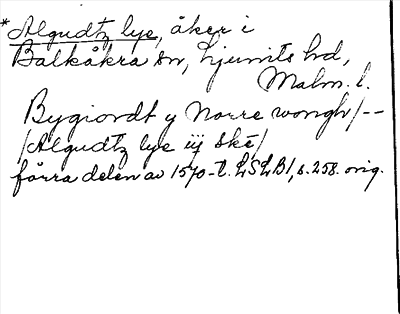 *Algudtz lye, åker i
Balkåkra sn, Ljunits hd,
Malm. l.
Bygiordt y Norre wongh/--
/Algudtz lye iij Skē/
förra delen av 1570-t. LSLB1, s. 258. orig.